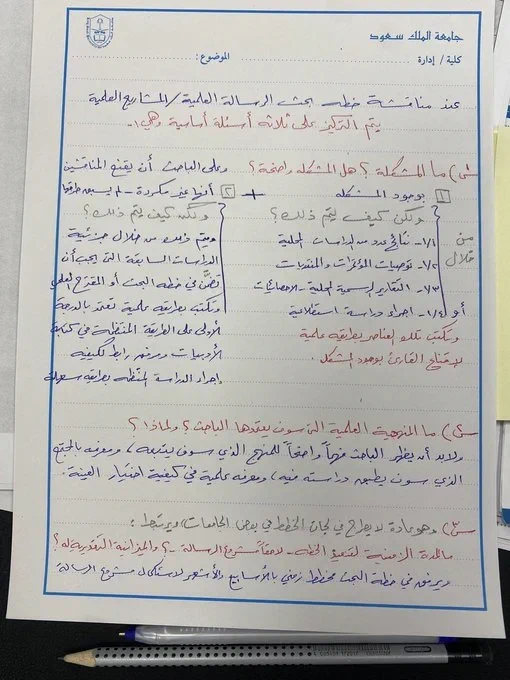 جامعة الملك سعود
كلية / إدارة
الموضوع:
عند مناقشة خطه بحث الرسالة العلمية / المشاريع العلمية
يتم التركيز على ثلاثه أسئلة أساسية وهي :-
س١) ما المشكلة ؟ هل المشكله واضحة ؟ وعلى الباحث أن يقنع المناقشين
١ بوجود المشكله + ٢ أنها غير مكررة - لم يسبق طرقها
من خلال
ولكن كيف يتم ذلك ؟
١/١- نتائج عدد من الدراسات المحلية
١/٢- توصيات المؤتمرات والمنتديات
١/٣- التقارير الرسمية المحلية - الاحصائيات
أو ١/٤- اجراء دراسة استطلاعية
وتكتب تلك العناصر بطريقه علمية
لإقناع القارئ بوجود المشكل.
ولكن كيف يتم ذلك ؟
ويتم ذلك من خلال جزئية
الدراسات السابقة التي يجب أن
تضمَّن في خطه البحث أو المقترح العلمي
وتكتب بطريقه علمية تعتمد بالدرجة
الأولى على الطريقة المنتظمة في كتابة
الأدبيات ومرفق رابط لكيفيه
إجراء الدراسة المنتظمه بطريقه سهلة
س٢) ما المنهجية العلمية التي سوف يعتمدها الباحث ؟ ولماذا ؟
ولابد أن يظهر الباحث فهماً واضحاً للمنهج الذي سوف يتبعه، ومعرفه بالمجتمع
الذي سوف يطبق دراسته فيه، ومعرفه علمية في كيفية اختيار العينة.
س٣) وهو عادة لا يطرح في لجان الخطط في بعض الجامعات ويرتبط :
ما المدة الزمنية لتنفيذ الخطه - لاحقاً مشروع الرسالة - ؟ والميزانية التقديرية له ؟
ويرفق في خطة البحث مخطط زمني بالأسابيع والأشهر لاستكمال مشروع الرسالة